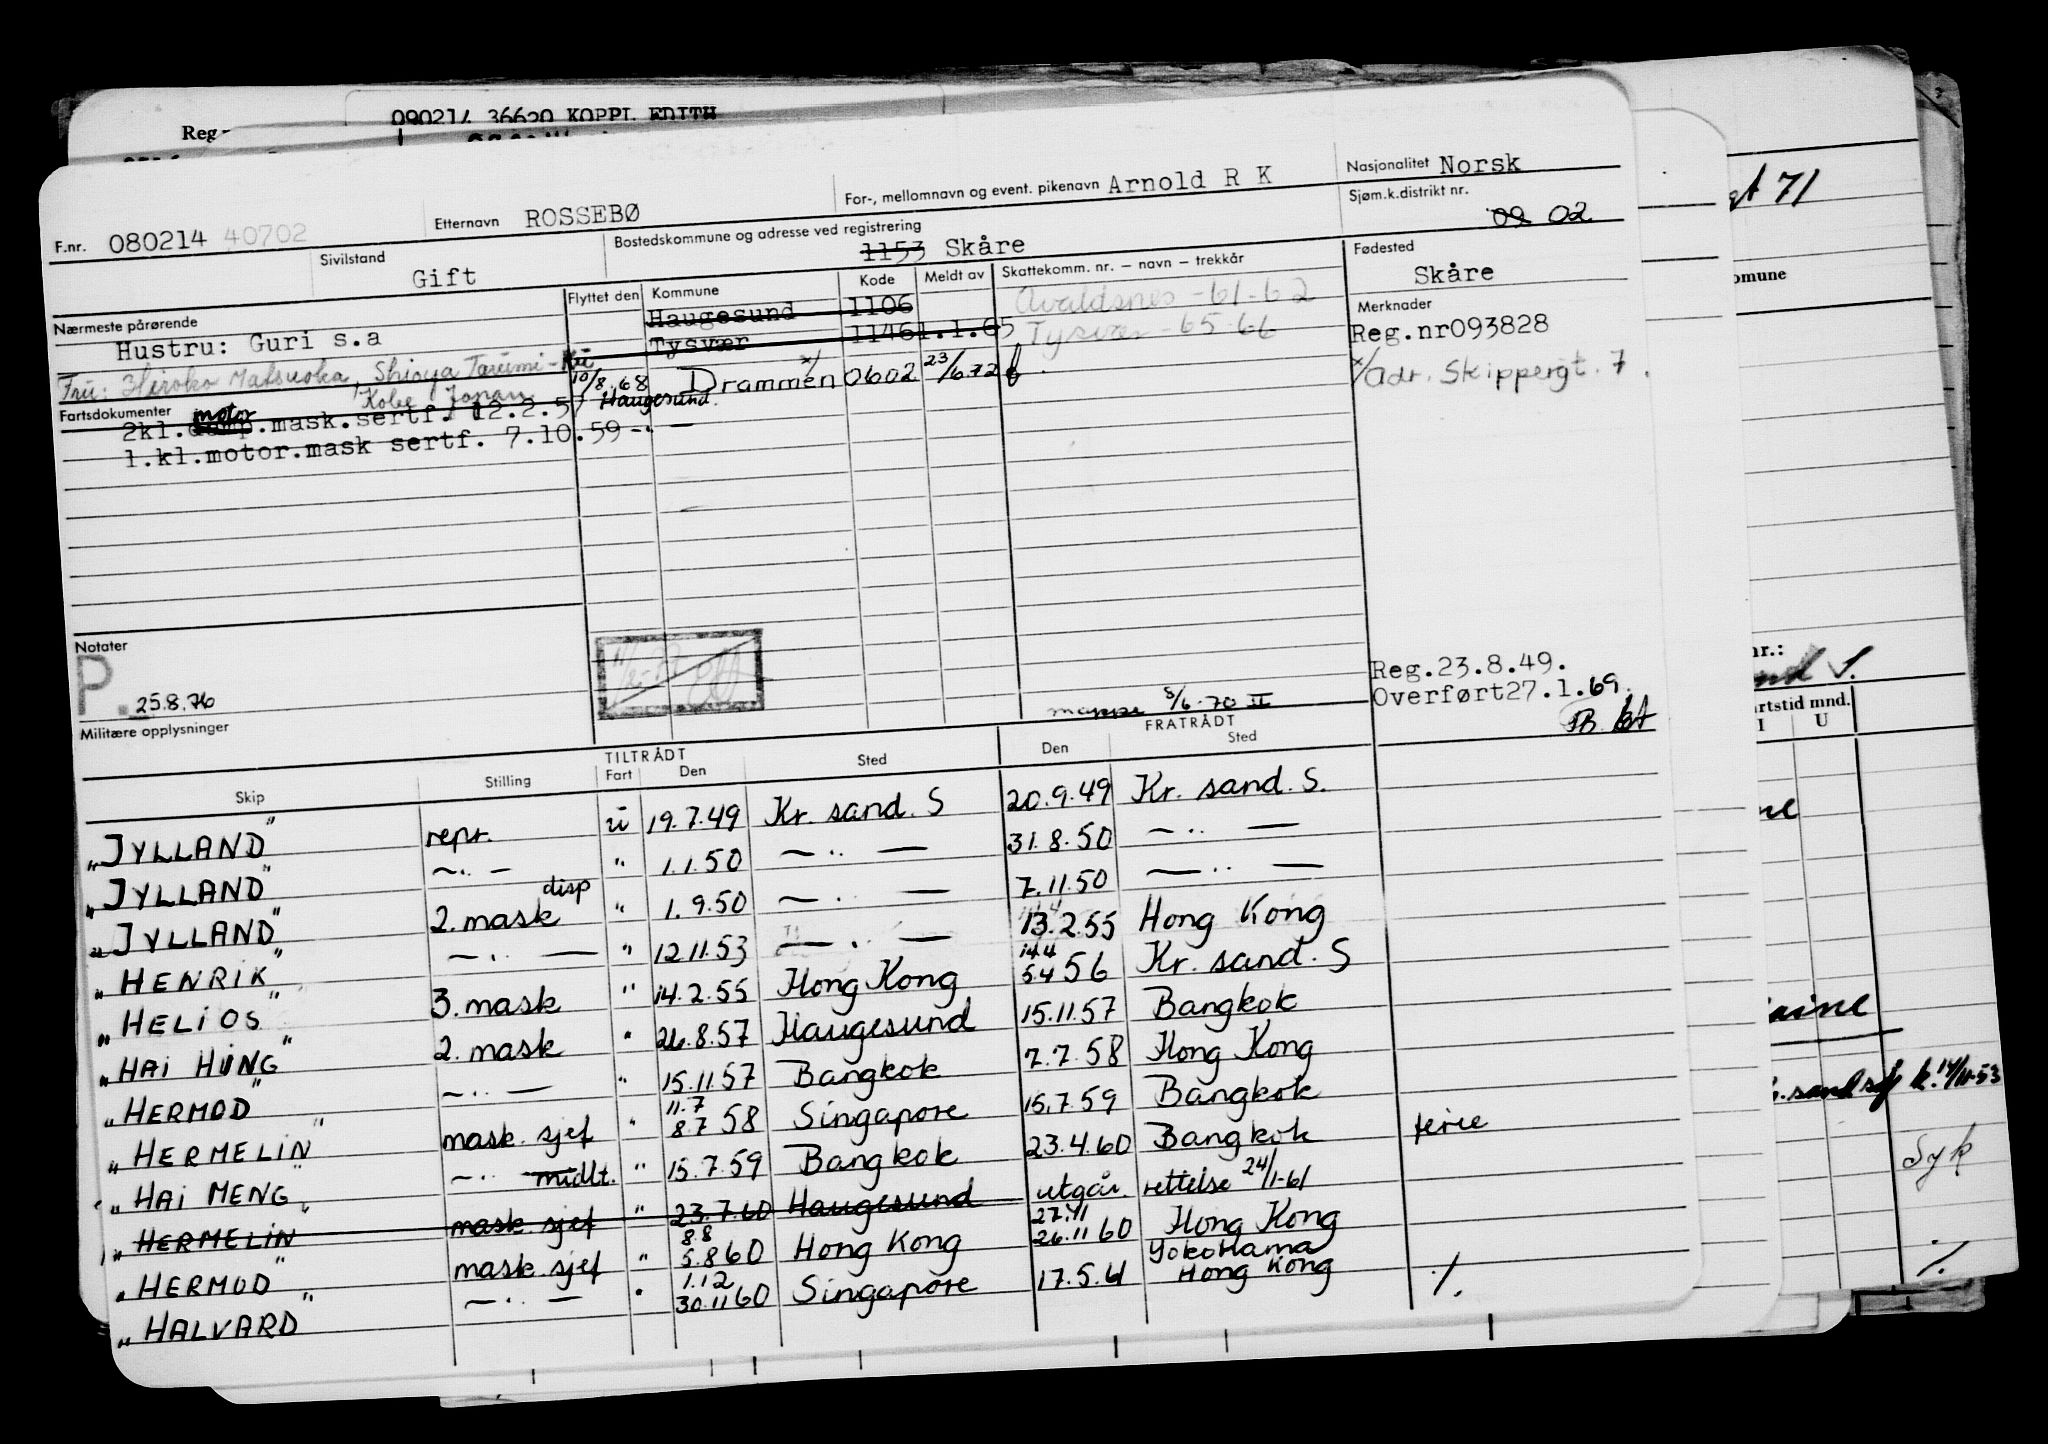 090214 36620 KOPPL EDITH
Reg
F.nr. 080214 40702 Etternavn ROSSEBØ For-, mellomnavn og event. pikenavn Arnold R K Nasjonalitet Norsk
Sivilstand Gift Bostedskommune og adresse ved registrering 1153 Skåre Sjøm.k.distrikt nr. 09 02
Nærmeste pårørende Flyttet den Kommune Kode Meldt av Skattekomm. nr. — navn — trekkår Fødested Skåre
Hustru: Guri s.a Haugesund 1106 Avaldsnes -61-62 Merknader
Tysvær 1146 1.1.65 Tysvær -65 66 Reg.nr093828
Fru: Hiroko Matsuoka, Shioya Tarumi-Ku 10/8.68 Drammen x/ 0602 23/6.72 x/ Adr. Skippergt. 7.
Kobe Japan Haugesund
Fartsdokumenter
2kl. motor.mask.sertf. 12.2.57
1.kl.motor.mask sertf. 7.10.59
Notater
P. 25.8.76
Reg.23.8.49.
Overført27.1.69.
mappe 5/6.70 II
Militære opplysninger
TILTRÅDT FRATRÅDT
Skip Stilling Fart Den Sted Den Sted
"JYLLAND" repr. u 19.7.49 Kr. sand. S 20.9.49 Kr. sand. S.
"JYLLAND" —..— " 1.1.50 —..— 31.8.50 —..—
"JYLLAND" 2. mask disp " 1.9.50 —.— 7.11.50 —..—
"HENRIK" —..— " 12.11.53 —.— 13.2.55 Hong Kong
"HELIOS" 3. mask " 14.2.55 Hong Kong 14.4 5.4 56 Kr. sand. S
"HAI HING" 2. mask " 26.8.57 Haugesund 15.11.57 Bangkok
"HERMOD" —..— " 15.11.57 Bangkok 7.7.58 Hong Kong
"HERMELIN" mask. sjef " 11.7 8.7 58 Singapore 15.7.59 Bangkok
"HAI MENG" —..— midlt. " 15.7.59 Bangkok 23.4.60 Bangkok ferie
"HERMELIN" mask sjef " 23.7.60 Haugesund utgår. rettelse 24/1-61
"HERMOD" mask. sjef " 8.8 5.8 60 Hong Kong 27.11 26.11 60 Hong Kong
"HALVARD" —..— " 1.12 30.11 60 Singapore 17.5.61 Yokohama Hong Kong ./.
71
omune
nr.:
S.
rtstid mnd.
U
k. 14/11-53
Syk
./.